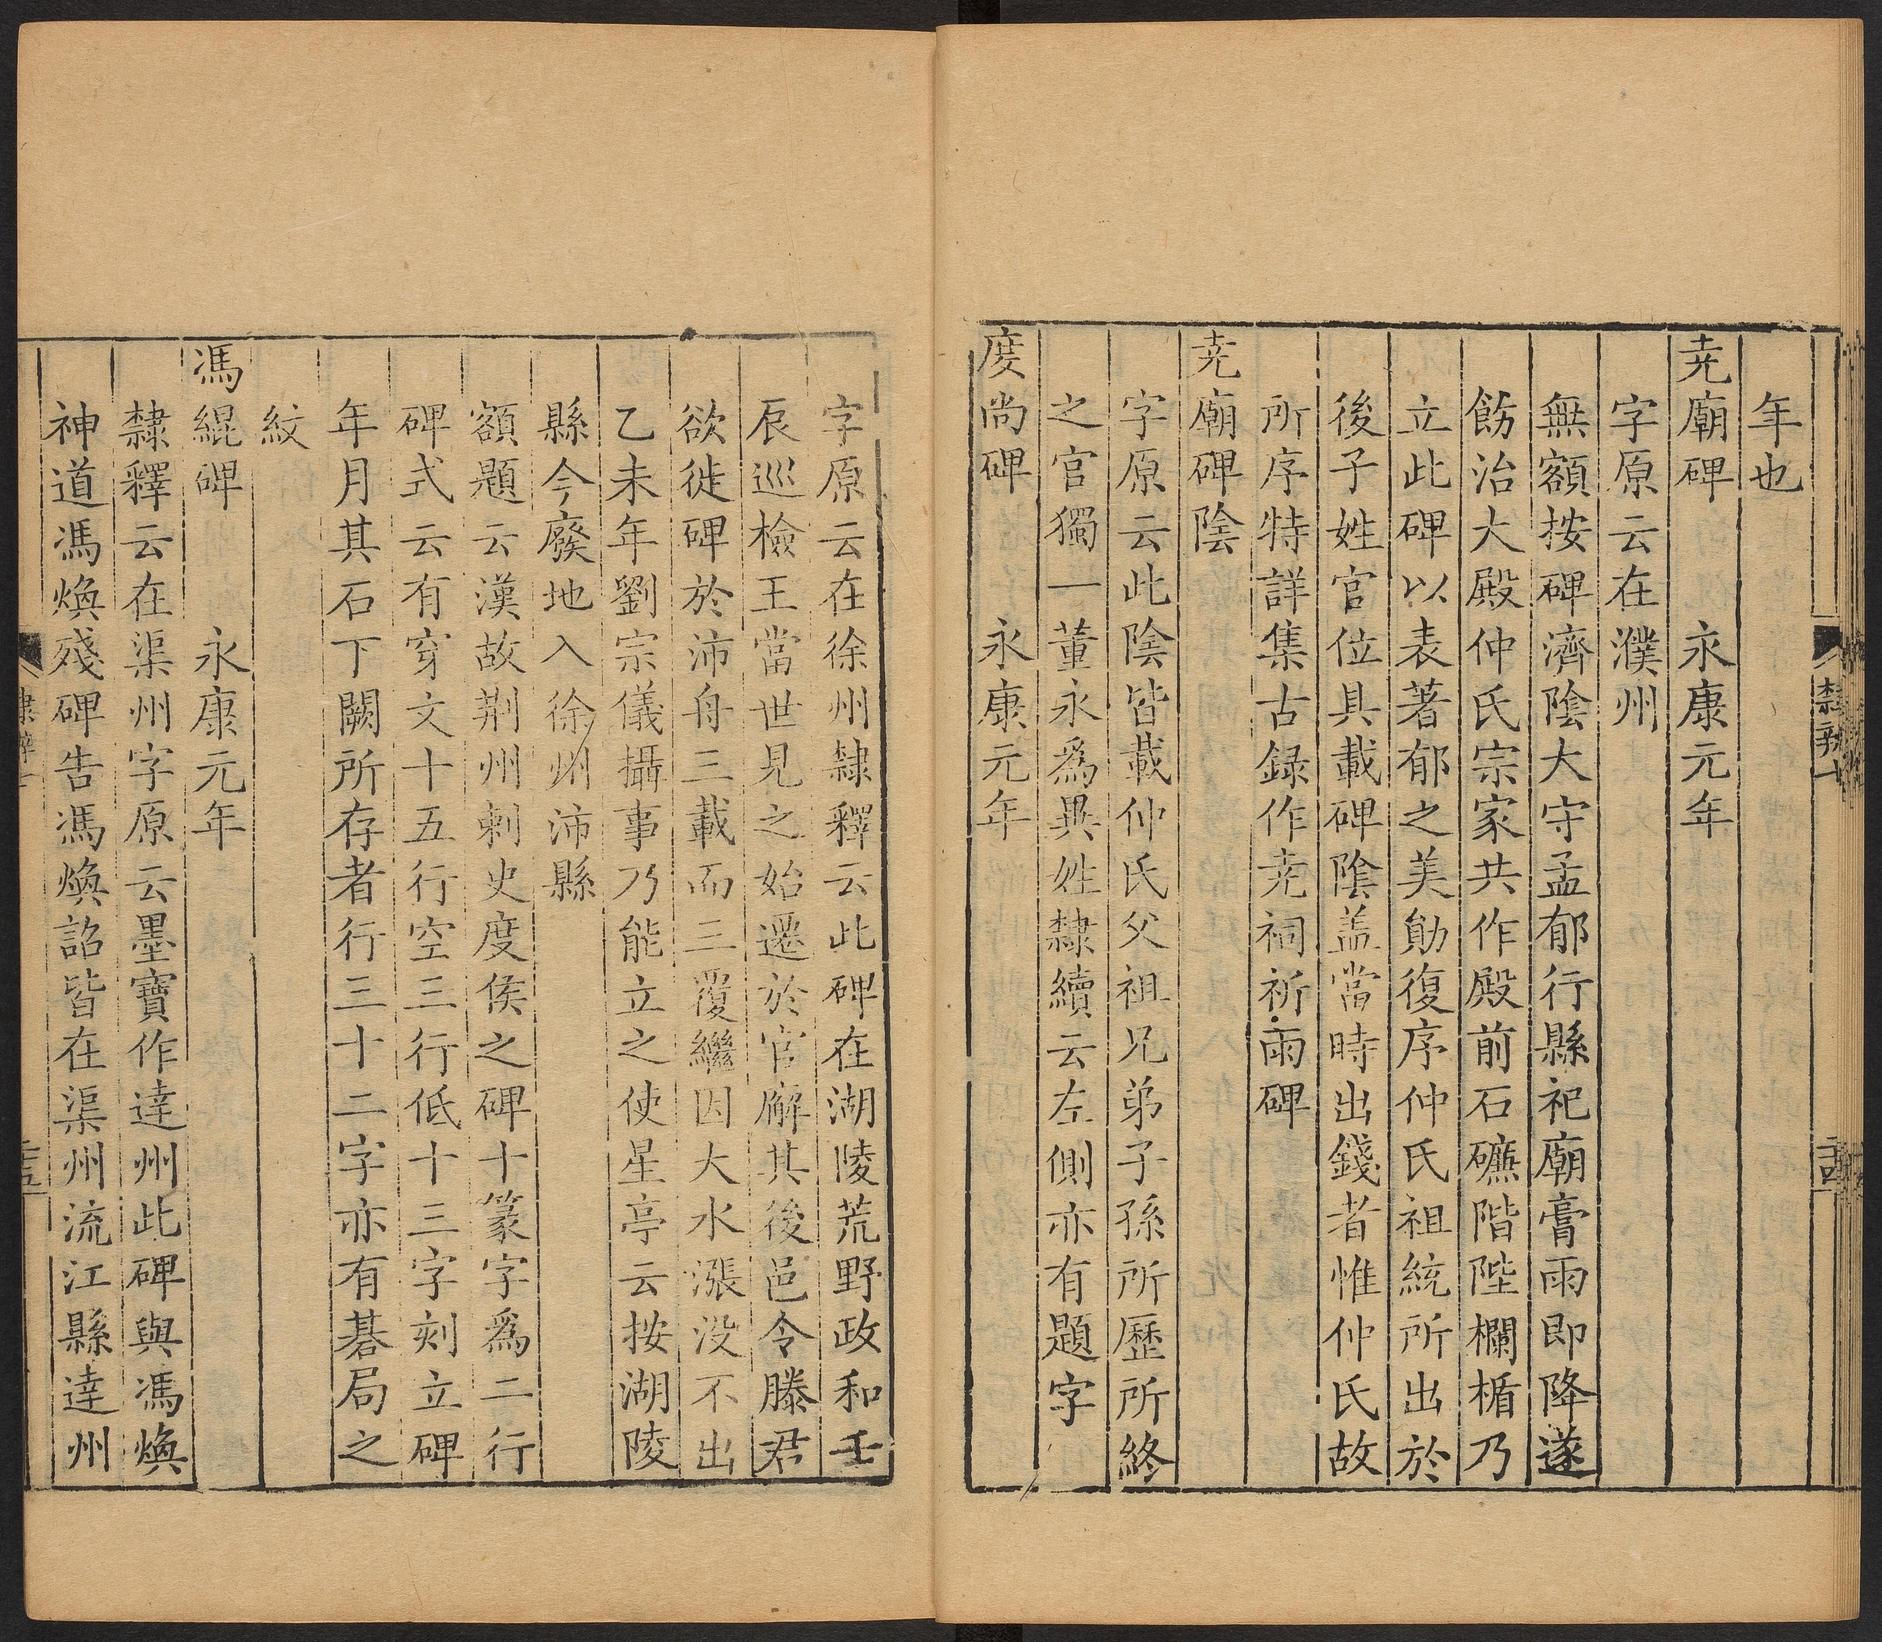 年也
尭廟碑　永康元年
字原云在濮州
無額按碑濟陰大守孟郁行縣祀廟膏雨即降遂
飭治大殿仲氏宗家共作殿前石礓階陛欄楯乃
立此碑以表著郁之美勛復序仲氏祖統所出於
後子姓官位具載碑陰盖當時出錢者惟仲氏故
所序特詳集古録作尭祠祈雨碑
尭廟碑陰
字原云此陰皆載仲氏父祖兄弟子孫所歷所終
之官獨一董永爲異姓隸續云左側亦有題字
度尚碑　永康元年
隸辨
字原云在徐州隸釋云此碑在湖陵荒野政和壬
辰巡檢王當世見之始遷於官廨其後邑令滕君
欲徙碑於沛舟三載而三覆繼因大水漲没不出
乙未年劉宗儀攝事乃能立之使星亭云按湖陵
縣今廢地入徐州沛縣
額題云漢故荆州刺史度侯之碑十篆字爲二行
碑式云有穿文十五行空三行低十三字刻立碑
年月其石下闕所存者行三十二字亦有碁局之
紋
馮緄碑　永康元年
隸釋云在渠州字原云墨寶作達州此碑與馮煥
神道馮煥殘碑告馮煥詔皆在渠州流江縣達州